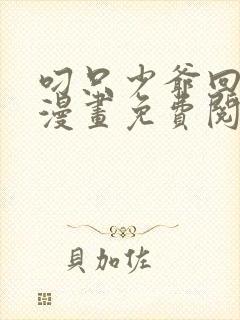 叼只少爺回
漫畫免費閱
貝加佐